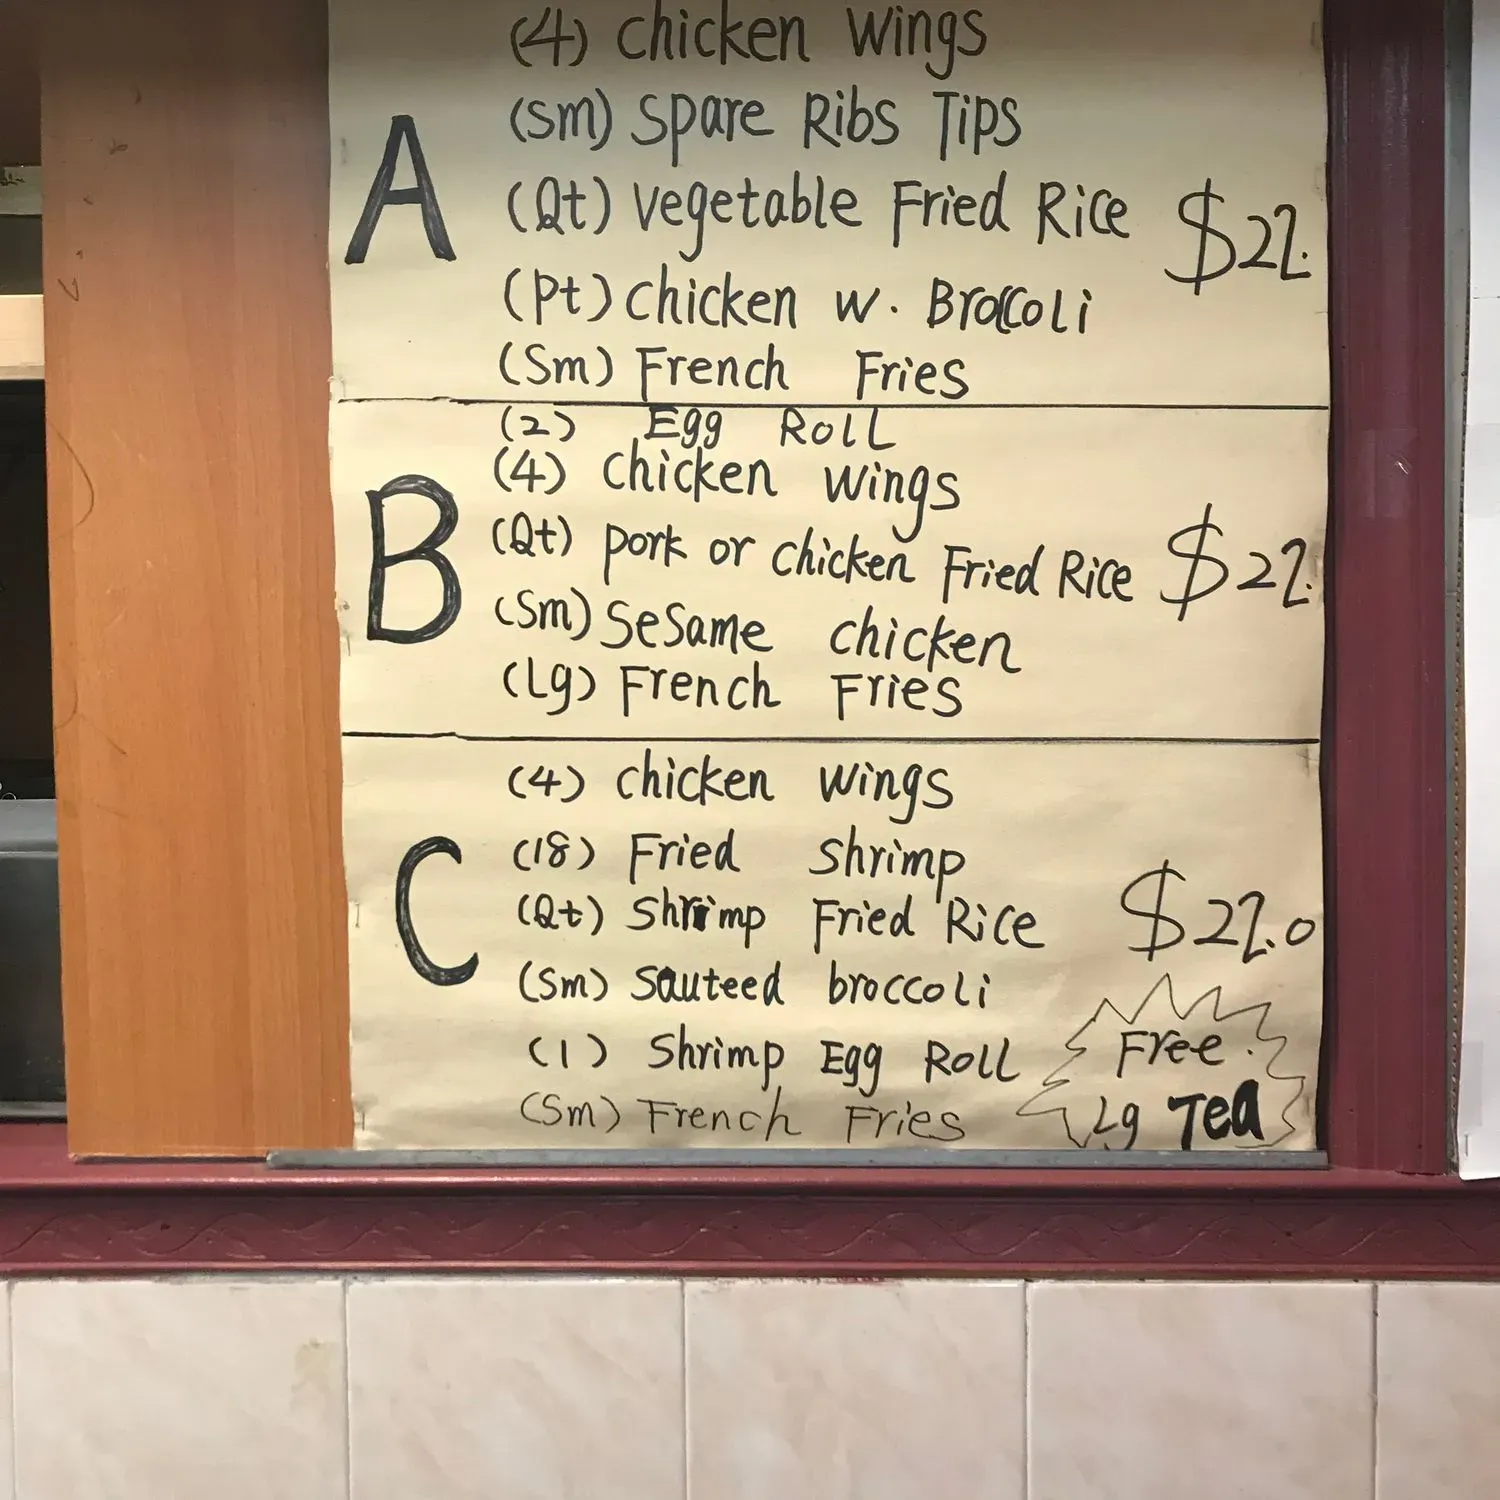 (4) chicken wings
(Sm) Spare Ribs Tips
A
(Qt) vegetable Fried Rice $22.
(Pt) chicken w. Broccoli
(Sm) French Fries
(2) Egg Roll
(4) chicken wings
B
(Qt) pork or chicken Fried Rice $22.
(Sm) Sesame chicken
(Lg) French Fries
(4) chicken wings
(18) Fried Shrimp
C
(Qt) Shrimp Fried Rice $22.0
(Sm) Sauteed broccoli
(1) Shrimp Egg Roll
Free
(Sm) French Fries
Lg Tea